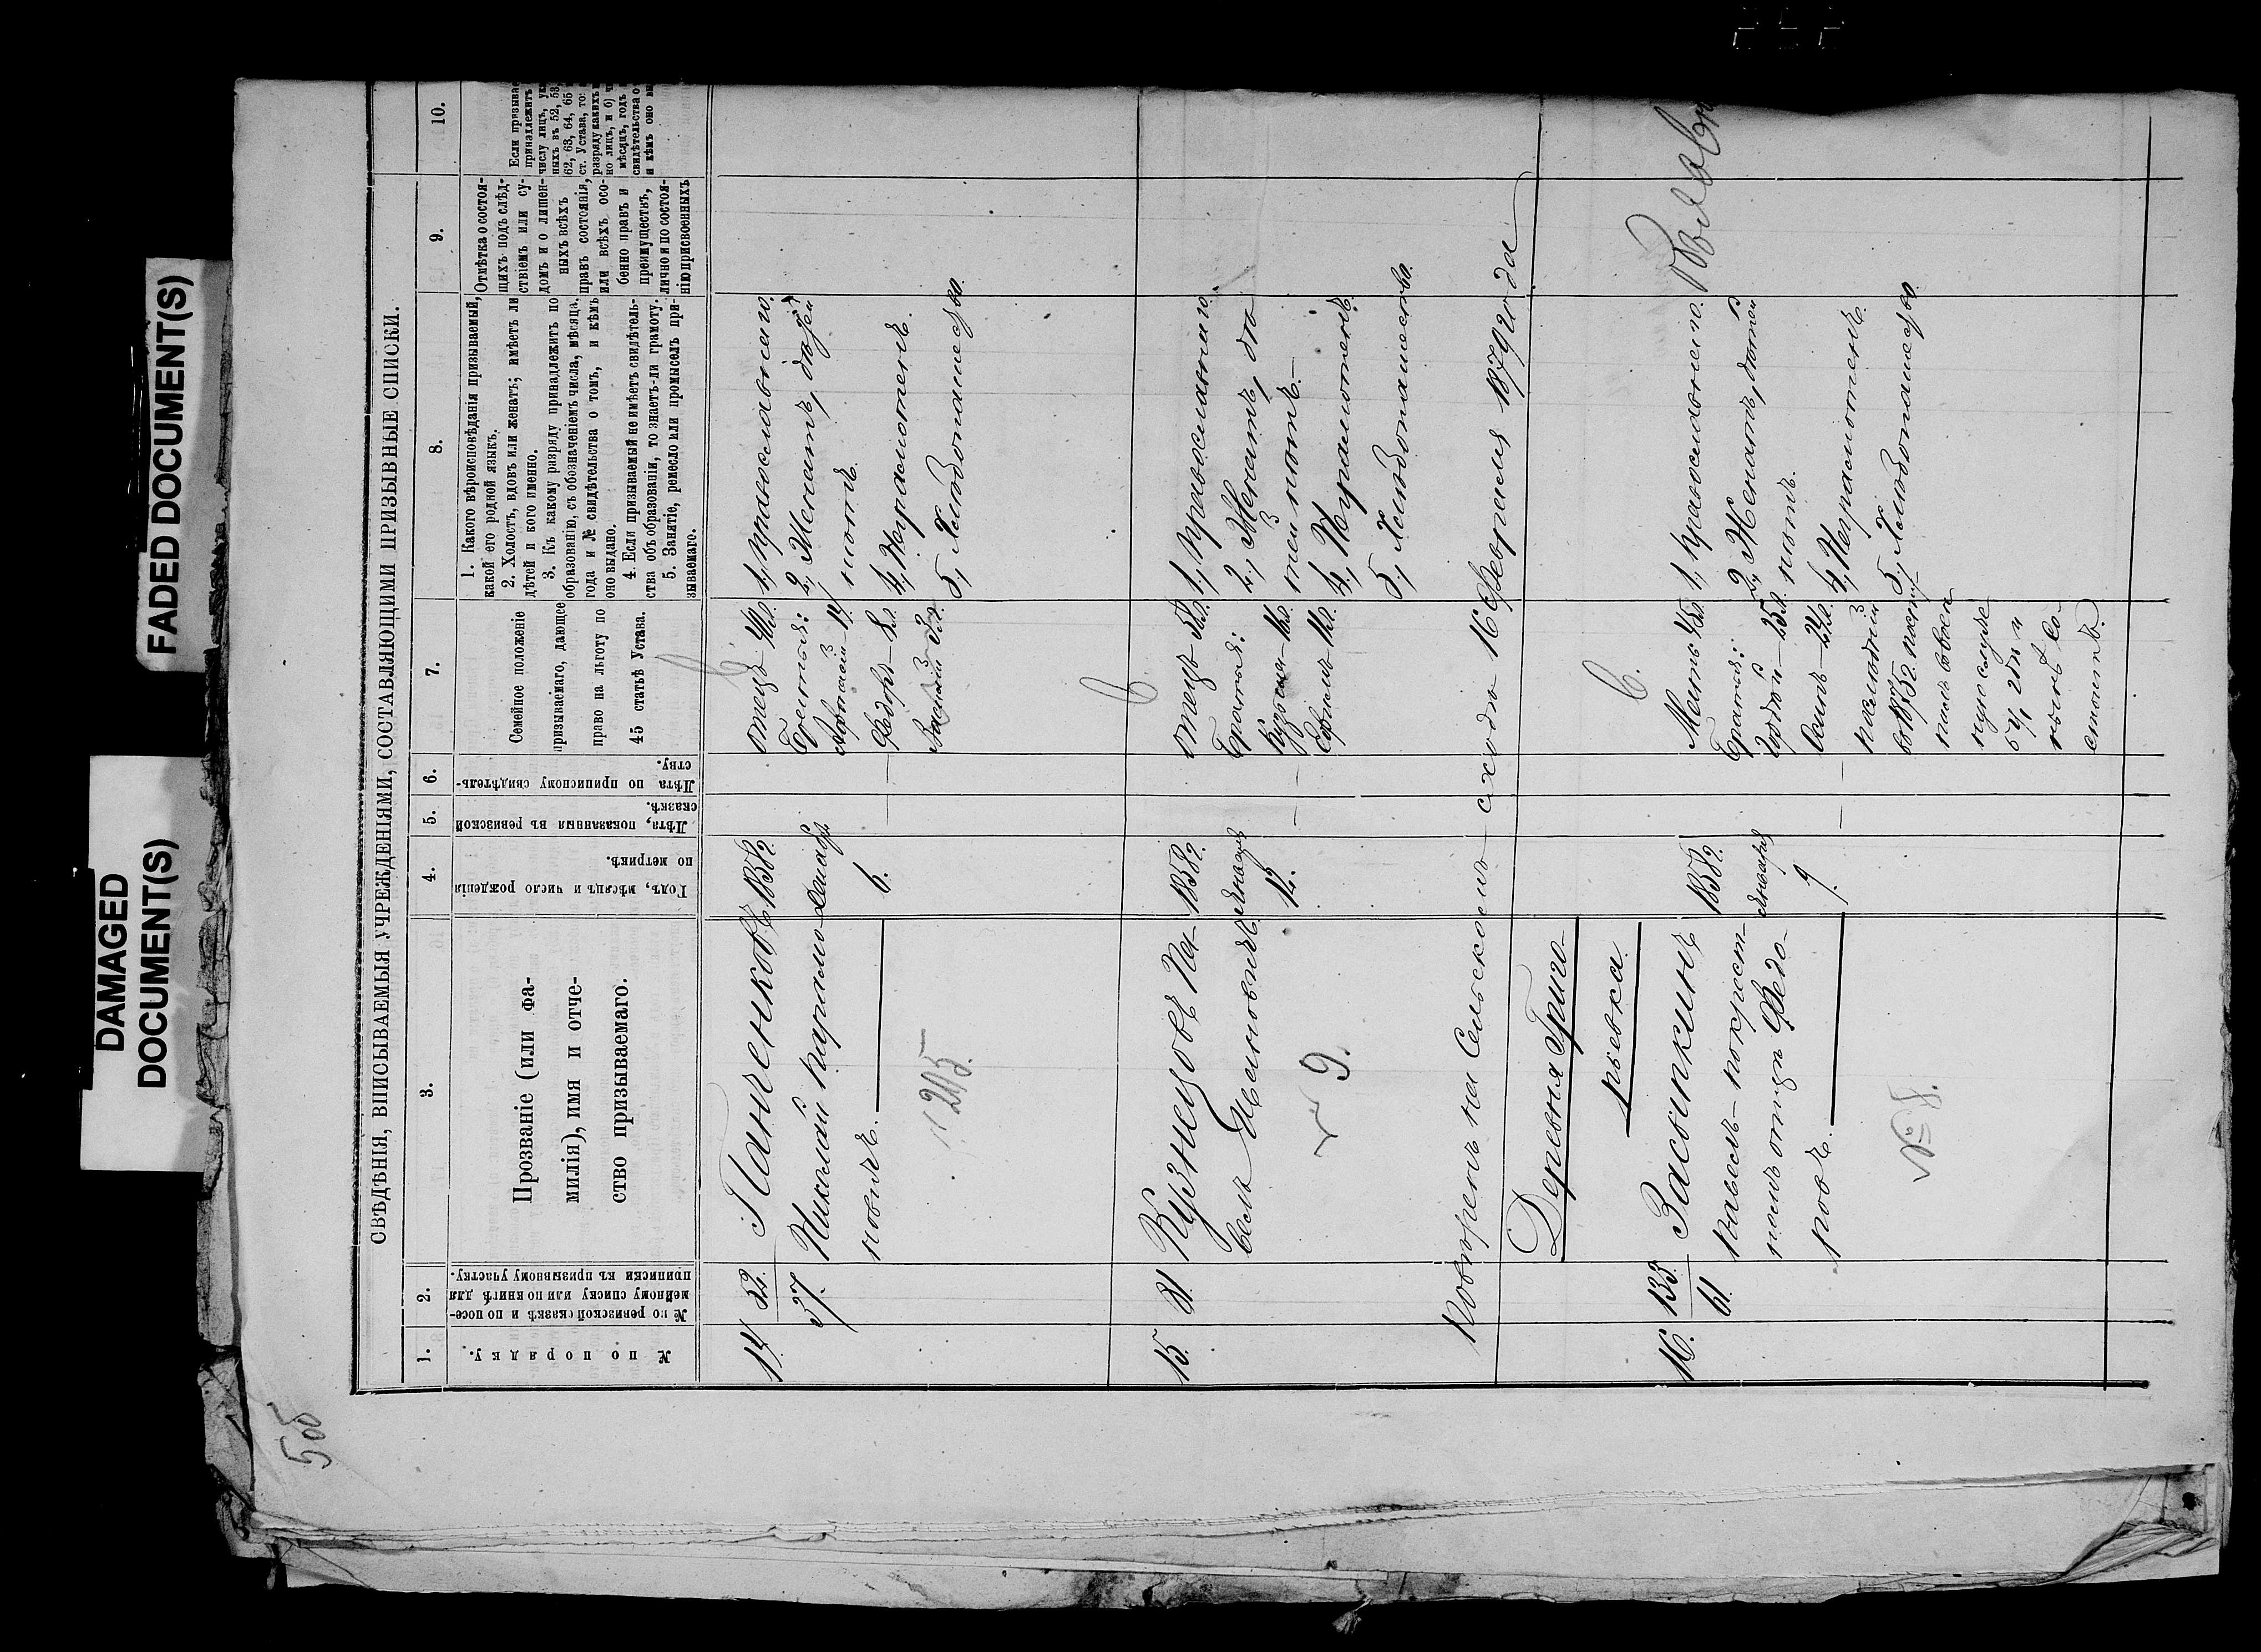 DAMAGED
DOCUMENT(S)
FADED DOCUMENT(S)
505
СВѢДѢНІЯ, ВПИСЫВАЕМЫЯ УЧРЕЖДЕНІЯМИ, СОСТАВЛЯЮЩИМИ ПРИЗЫВНЫЕ СПИСКИ.
1.
2.
3.
4.
5.
6.
7.
8.
9.
10.
№ по порядку.
№ по ревизской сказкѣ и по посе-
мейному списку или по книгѣ для
приписки къ призывному участку.
Прозваніе (или фа-
милія), имя и отче-
ство призываемаго.
Годъ, мѣсяцъ и число рожденія
по метрикѣ.
Лѣта, показанныя въ ревизской
сказкѣ.
Лѣта по приписному свидѣтель-
ству.
Семейное положеніе
призываемаго, дающее
право на льготу по
45 статьѣ Устава.
1. Какого вѣроисповѣданія призываемый,
какой его родной языкъ.
2. Холостъ, вдовъ или женатъ; имѣетъ ли
дѣтей и кого именно.
3. Къ какому разряду принадлежитъ по
образованію, съ обозначеніемъ числа, мѣсяца,
года и № свидѣтельства о томъ, и кѣмъ
оно выдано.
4. Если призываемый не имѣетъ свидѣтель-
ства объ образованіи, то знаетъ-ли грамоту.
5. Занятіе, ремесло или промыселъ при-
зываемаго.
Отмѣтка о состоя-
щихъ подъ слѣд-
ствіемъ или су-
домъ и о лишен-
ныхъ всѣхъ
правъ состоянія,
или всѣхъ осо-
бенно правъ и
преимуществъ,
лично и по состоя-
нію присвоенныхъ
Если призыва
принадлежитъ
числу лицъ, ук
ныхъ въ 52, 53,
62, 63, 64, 65
ст. Устава, то: а
разряду какихъ и
но лицъ, и б) ч
мѣсяцъ, годъ
свидѣтельства о
и кѣмъ оно вы
14
52.
37.
Панченковъ
Николай Харлам
повичъ.
205.
1858г.
6.
отецъ
Братья:
Федоръ
Василій
1, Православнаго.
2, Женатъ, дѣтей
нѣтъ.
4, Неграмотенъ.
5, Хлѣбопашество.
15.
81.
Кузнецовъ Па-
велъ Ивановичъ
9.
1858г.
12.
6.
отецъ
Братья:
Кузьма
1, Православнаго.
2, Женатъ, дѣ-
тей нѣтъ.
4, Неграмотенъ.
5, Хлѣбопашество.
Повѣренъ на Сельскомъ сходѣ 16 Февраля 1879 года
Деревня Григо-
рьевка
16.
135.
61.
Засыпкинъ
Павелъ покрест-
номъ отцѣ Федо-
ровъ.
1858г.
Января
9.
6.
Мать 45л.
Братья:
1, Православнаго.
2, Женатъ, дѣтей
нѣтъ.
4, Неграмотенъ.
5, Хлѣбопашество.